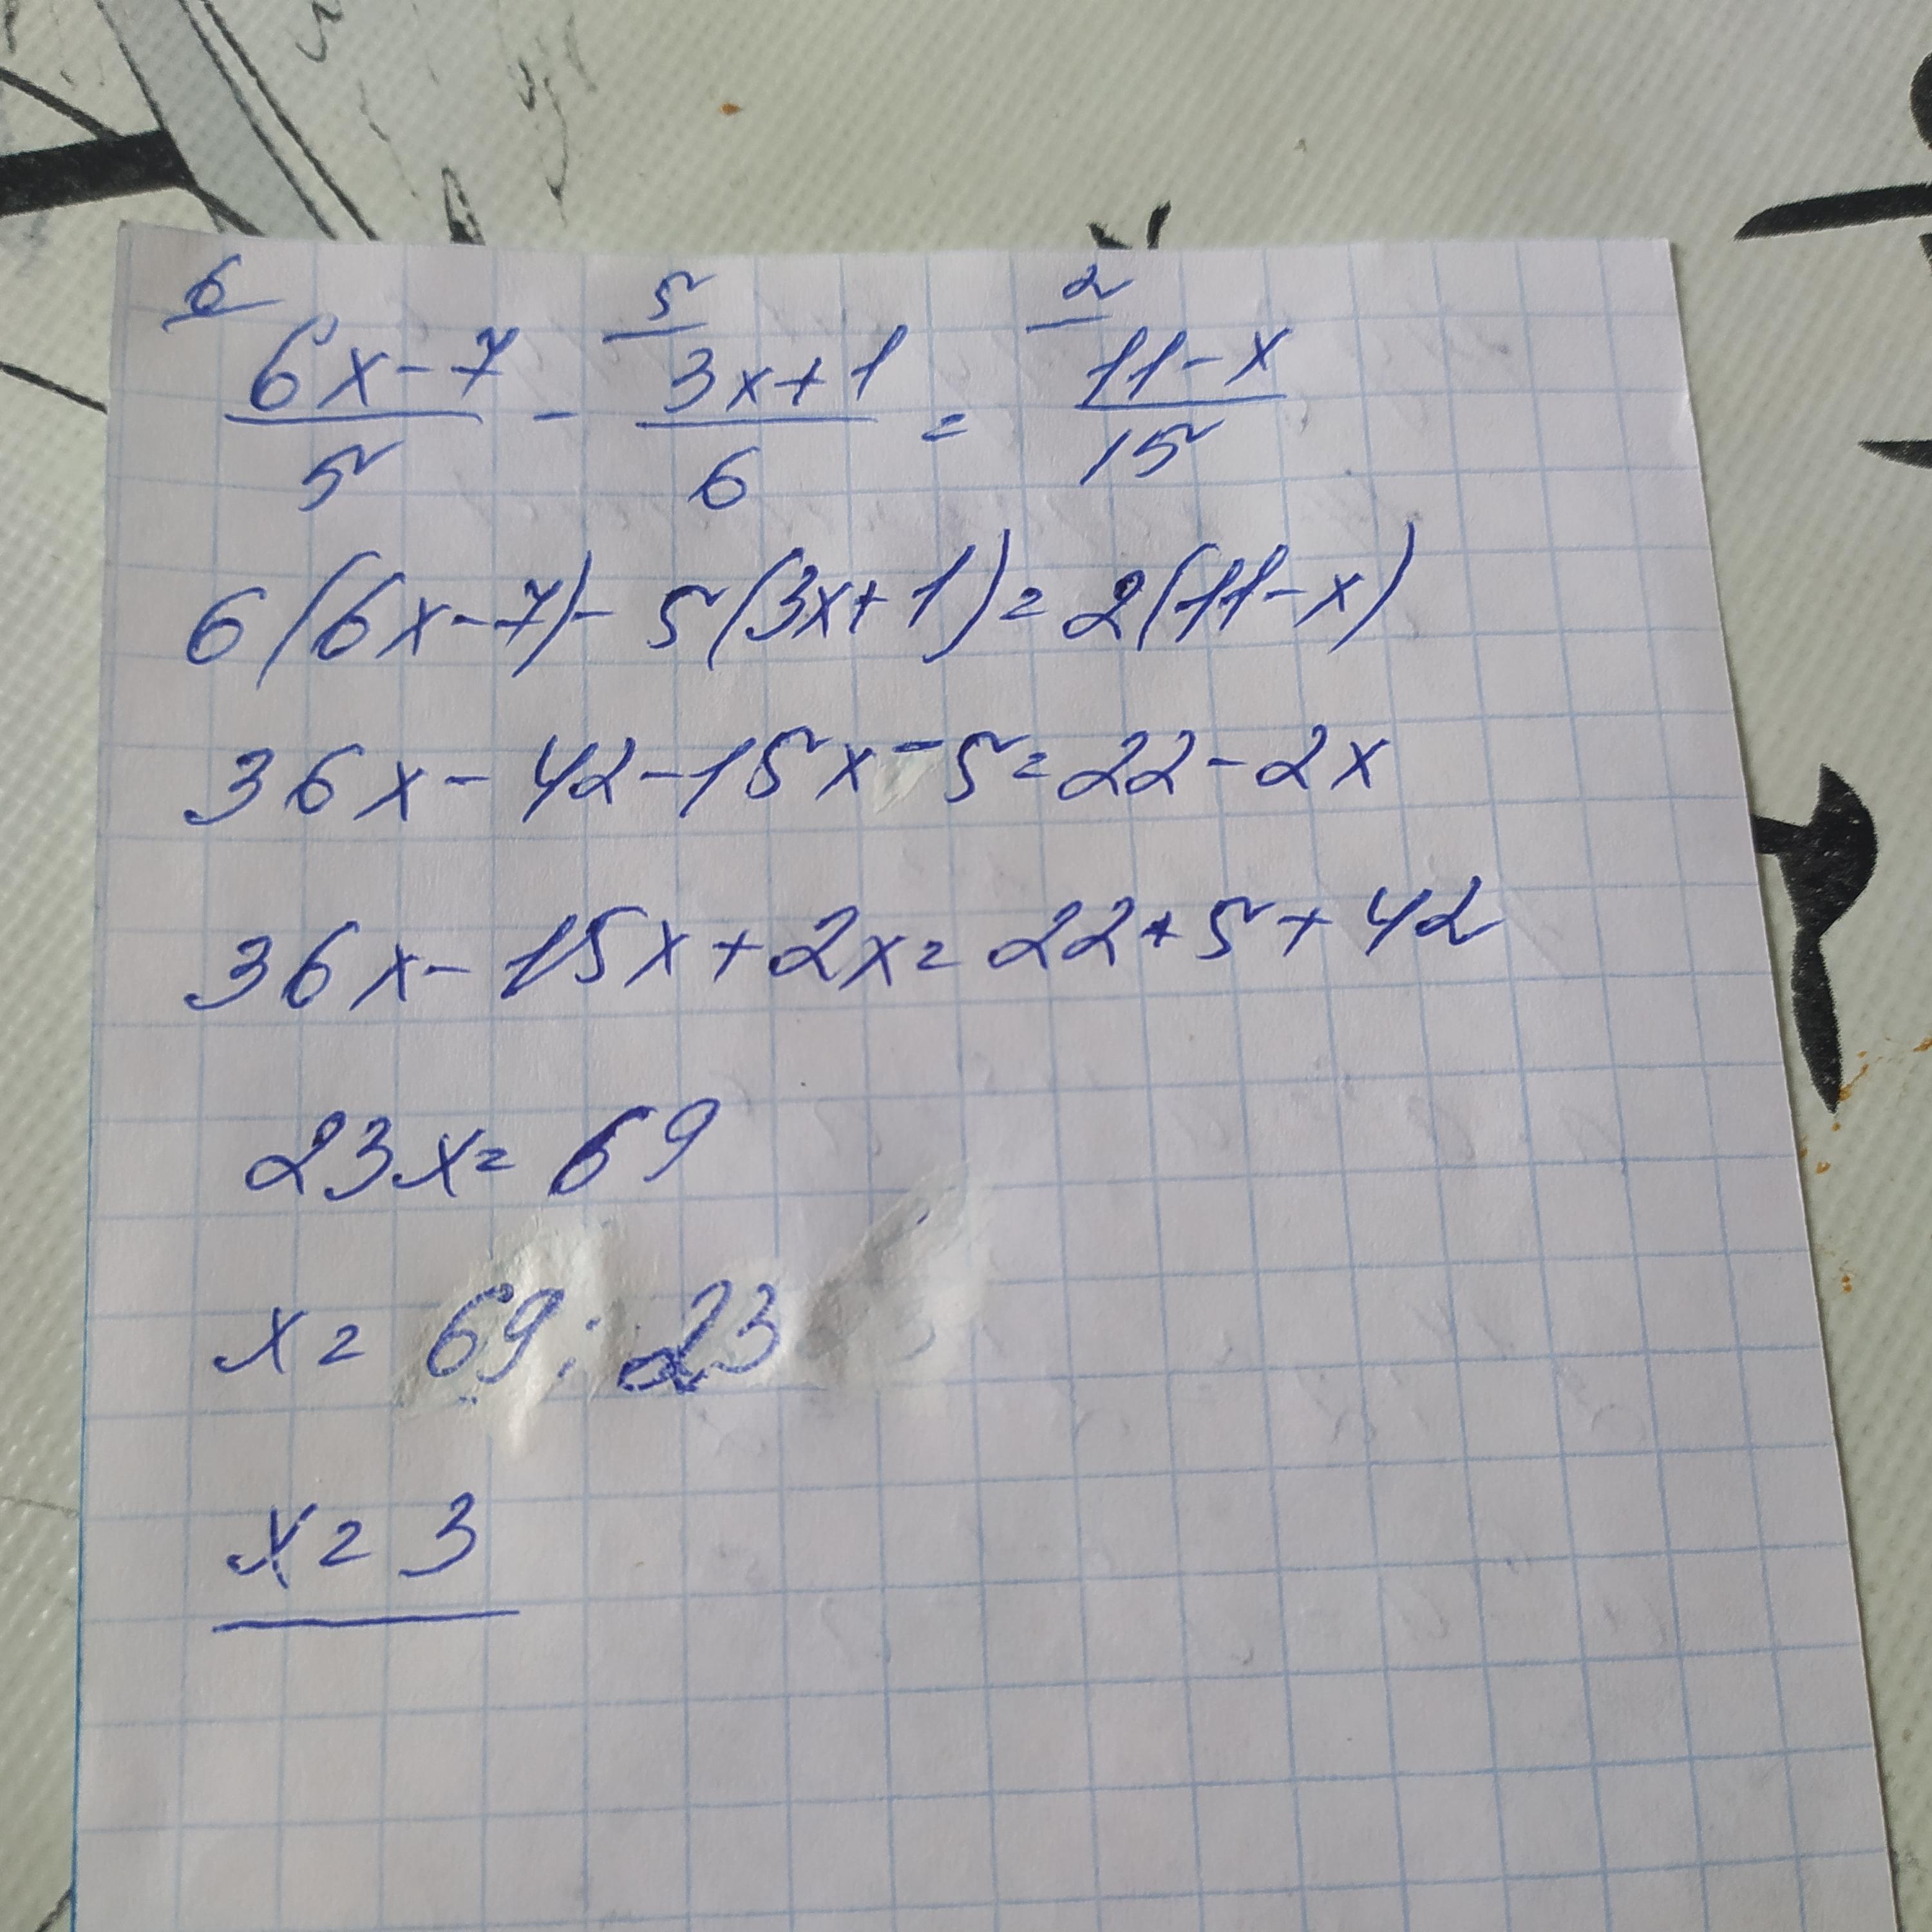 6 5 2
6x-7 / 5 - 3x+1 / 6 = 11-x / 15
6(6x-7)- 5(3x+1)=2(11-x)
36x-42-15x-5=22-2x
36x-15x+2x=22+5+42
23x=69
x= 69:23
x=3